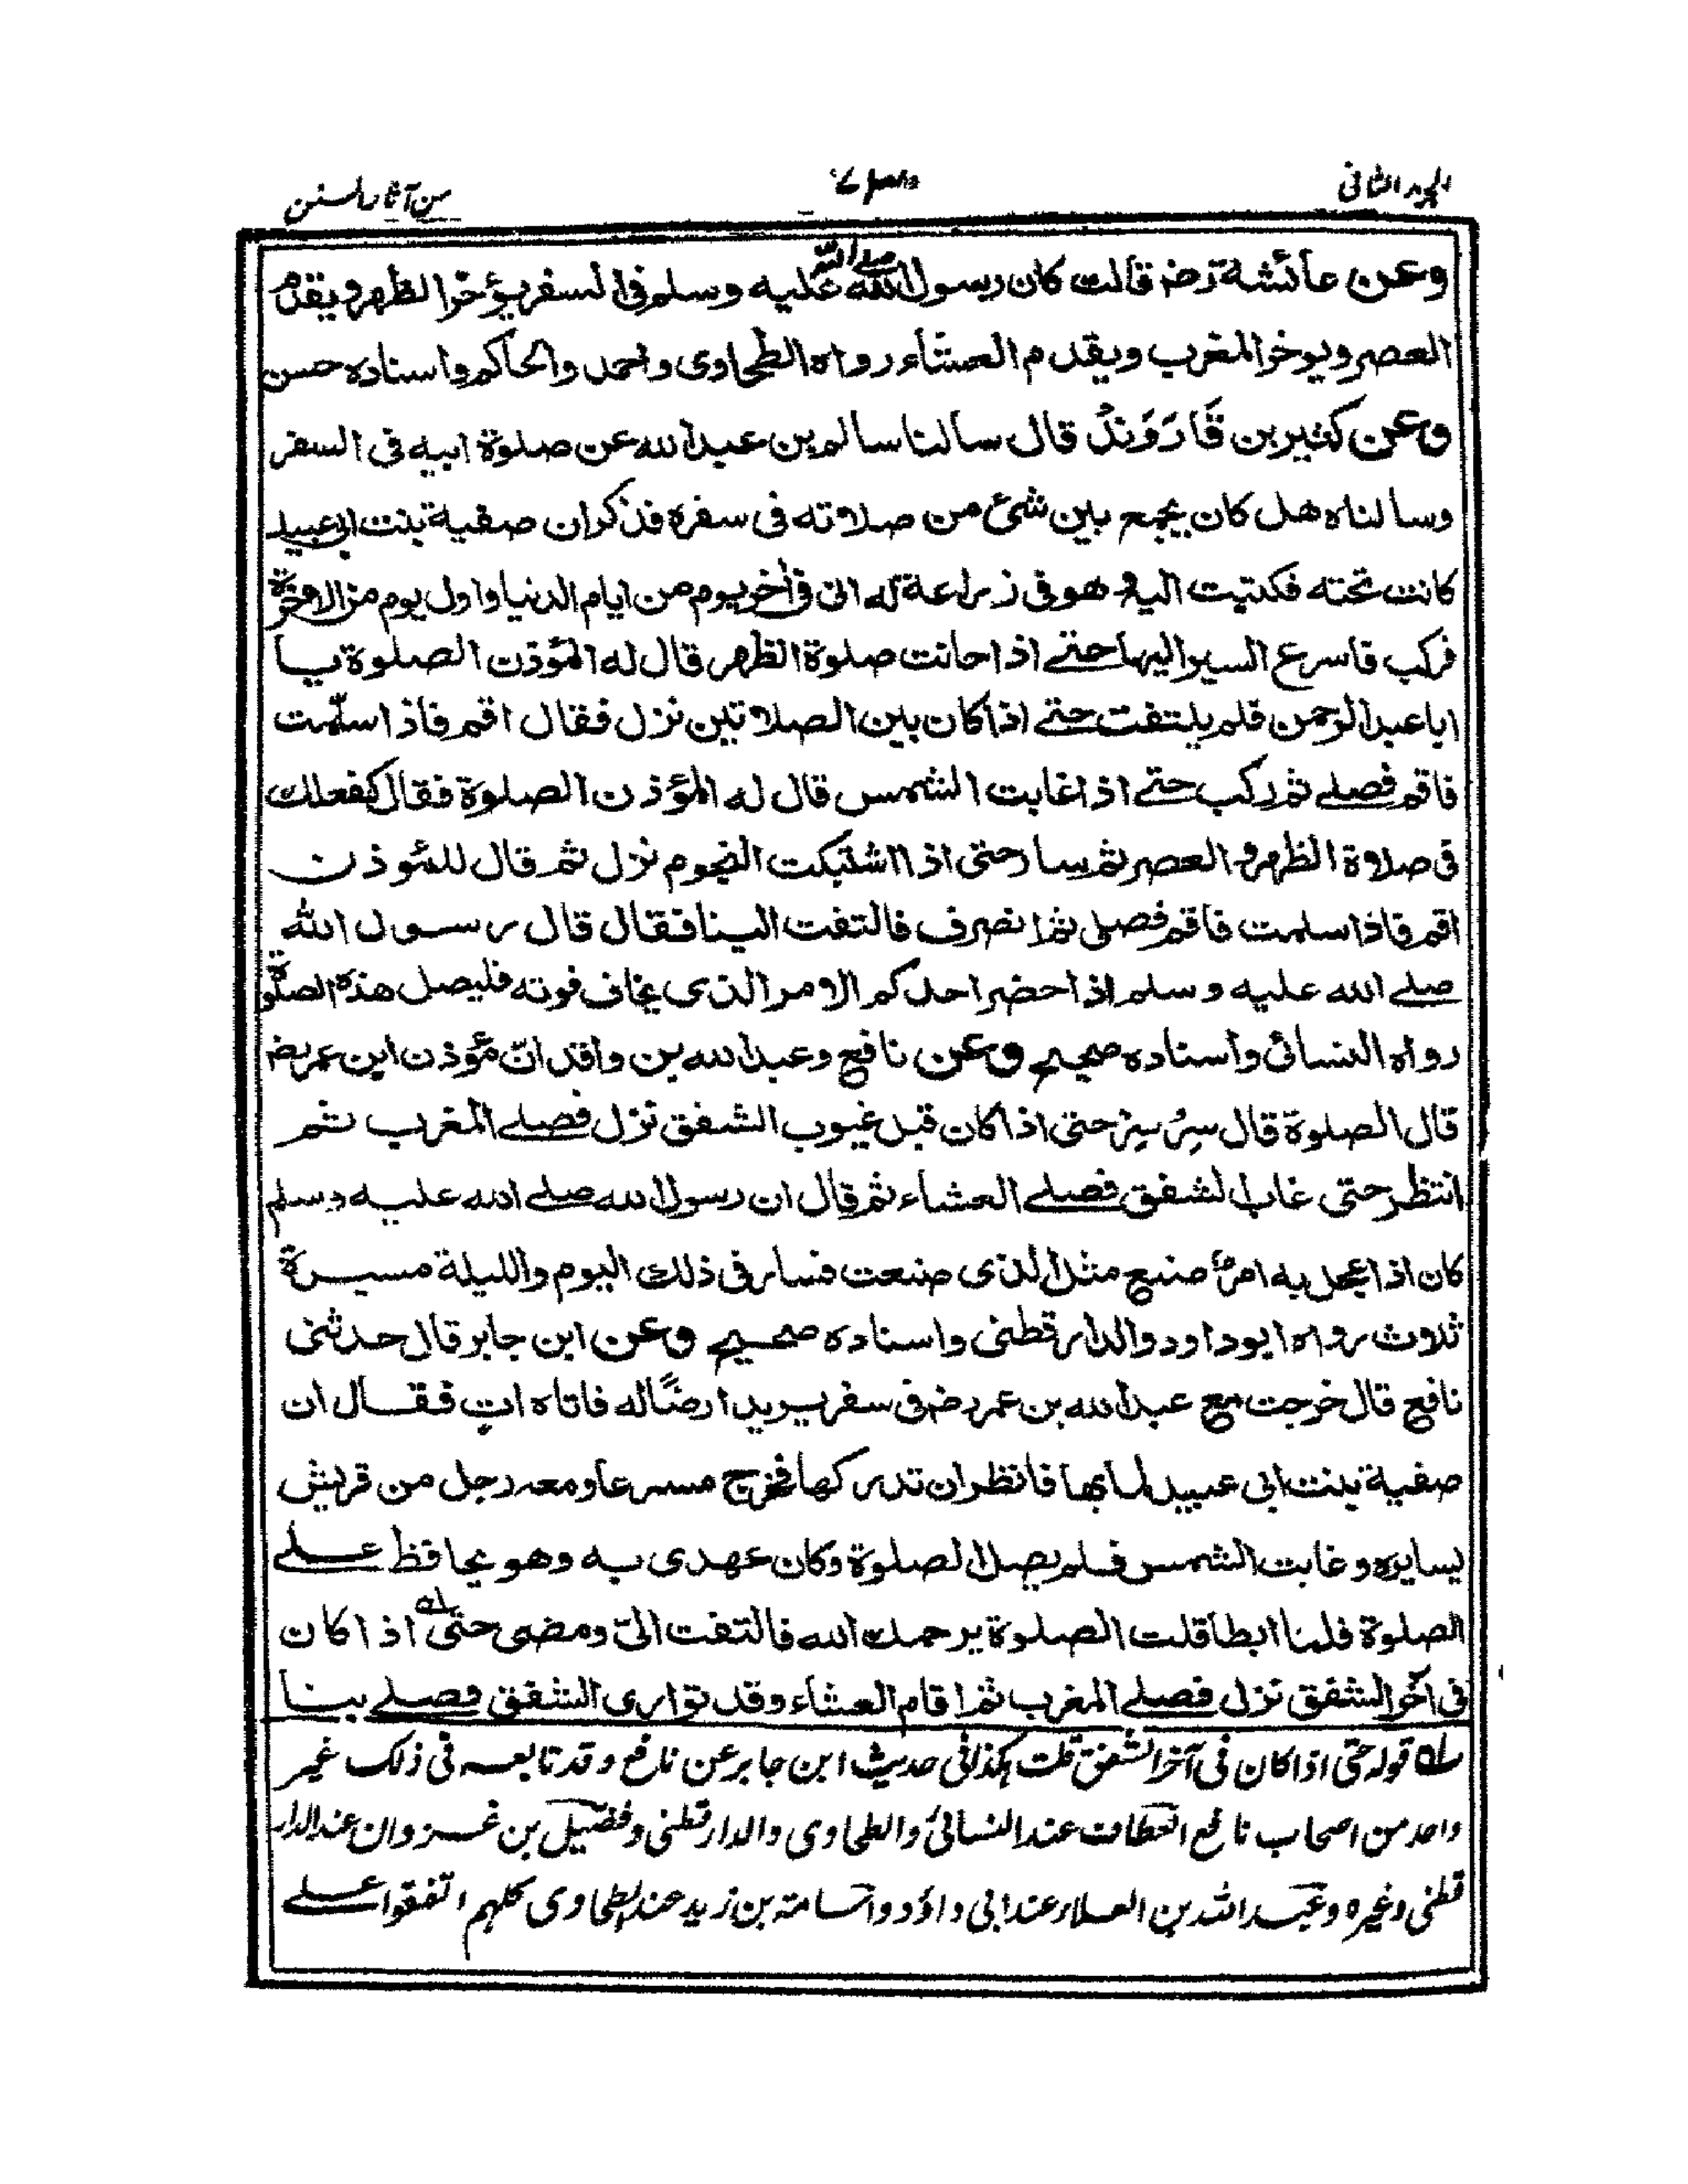 الجزء الثانى
من آثار السنن
وعن عائشة رضـ قالت كان رسول الله صلے الله عليه وسلم فى السفر يؤخر الظهر ويقدم
العصر ويوخر المغرب ويقدم العشاء رواه الطحاوى واحمد والحاكم واسناده حسن
وعن كثير بن قَارَوَنْدَ قال سالنا سالم بن عبد الله عن صلوة ابيه فى السفر
وسالناه هل كان يجمع بين شئ من صلاته فى سفره فذكر ان صفية بنت ابى عبيد
كانت تحته فكتبت اليه وهو فى زراعة له انى فى اٰخر يوم من ايام الدنيا واول يوم من الاٰخرة
فركب فاسرع السير اليها حتے اذا حانت صلوة الظهر قال له المؤذن الصلوة يا
ابا عبد الرحمن فلم يلتفت حتے اذا كان بين الصلاتين نزل فقال اقم فاذا سلّمت
فاقم فصلے ثم ركب حتے اذا غابت الشمس قال له المؤذن الصلوة فقال كفعلك
فى صلاة الظهر والعصر ثم سار حتى اذا اشتبكت النجوم نزل ثم قال للمؤذن
اقم فاذا سلمت فاقم فصلى ثم انصرف فالتفت الينا فقال قال رسول الله
صلے الله عليه وسلم اذا حضر احدكم الامر الذى يخاف فوته فليصل هذه الصلوة
رواه النسائى واسناده صحيح وعن نافع وعبد الله بن واقد انّ مؤذن ابن عمر رضـ
قال الصلوة قال سِرْ سِرْ حتى اذا كان قبل غيوب الشفق نزل فصلے المغرب ثم
انتظر حتى غاب الشفق فصلے العشاء ثم قال ان رسول الله صلے الله عليه وسلم
كان اذا عجل به امرٌ صنع مثل الذى صنعت فسار فى ذلك اليوم والليلة مسيرة
ثلاث رواه ابو داود والدارقطنى واسناده صحيح وعن ابن جابر قال حدثنى
نافع قال خرجت مع عبد الله بن عمر رضـ فى سفر يريد ارضًا له فاتاه اٰتٍ فقال ان
صفية بنت ابى عبيد لما بها فانظر ان تدركها فخرج مسرعا ومعه رجل من قريش
يسايره وغابت الشمس فلم يصل الصلوة وكان عهدى به وهو يحافظ علے
الصلوة فلما ابطا قلت الصلوة يرحمك الله فالتفت الىّ ومضى حتى اذا كان
فى اٰخر الشفق نزل فصلے المغرب ثم اقام العشاء وقد توارى الشفق فصلے بنا
ـلـه قوله حتى اذا كان فى آخر الشفق قلت هكذا فى حديث ابن جابر عن نافع وقد تابعه فى ذلك غير
واحد من اصحاب نافع العطاف عند النسائى والطحاوى والدارقطنى وفضيل بن غزوان عند الدار
قطنى وغيره وعبد الله بن العلاء عند ابى داؤد واسامة بن زيد عند الطحاوى كلهم اتفقوا علے